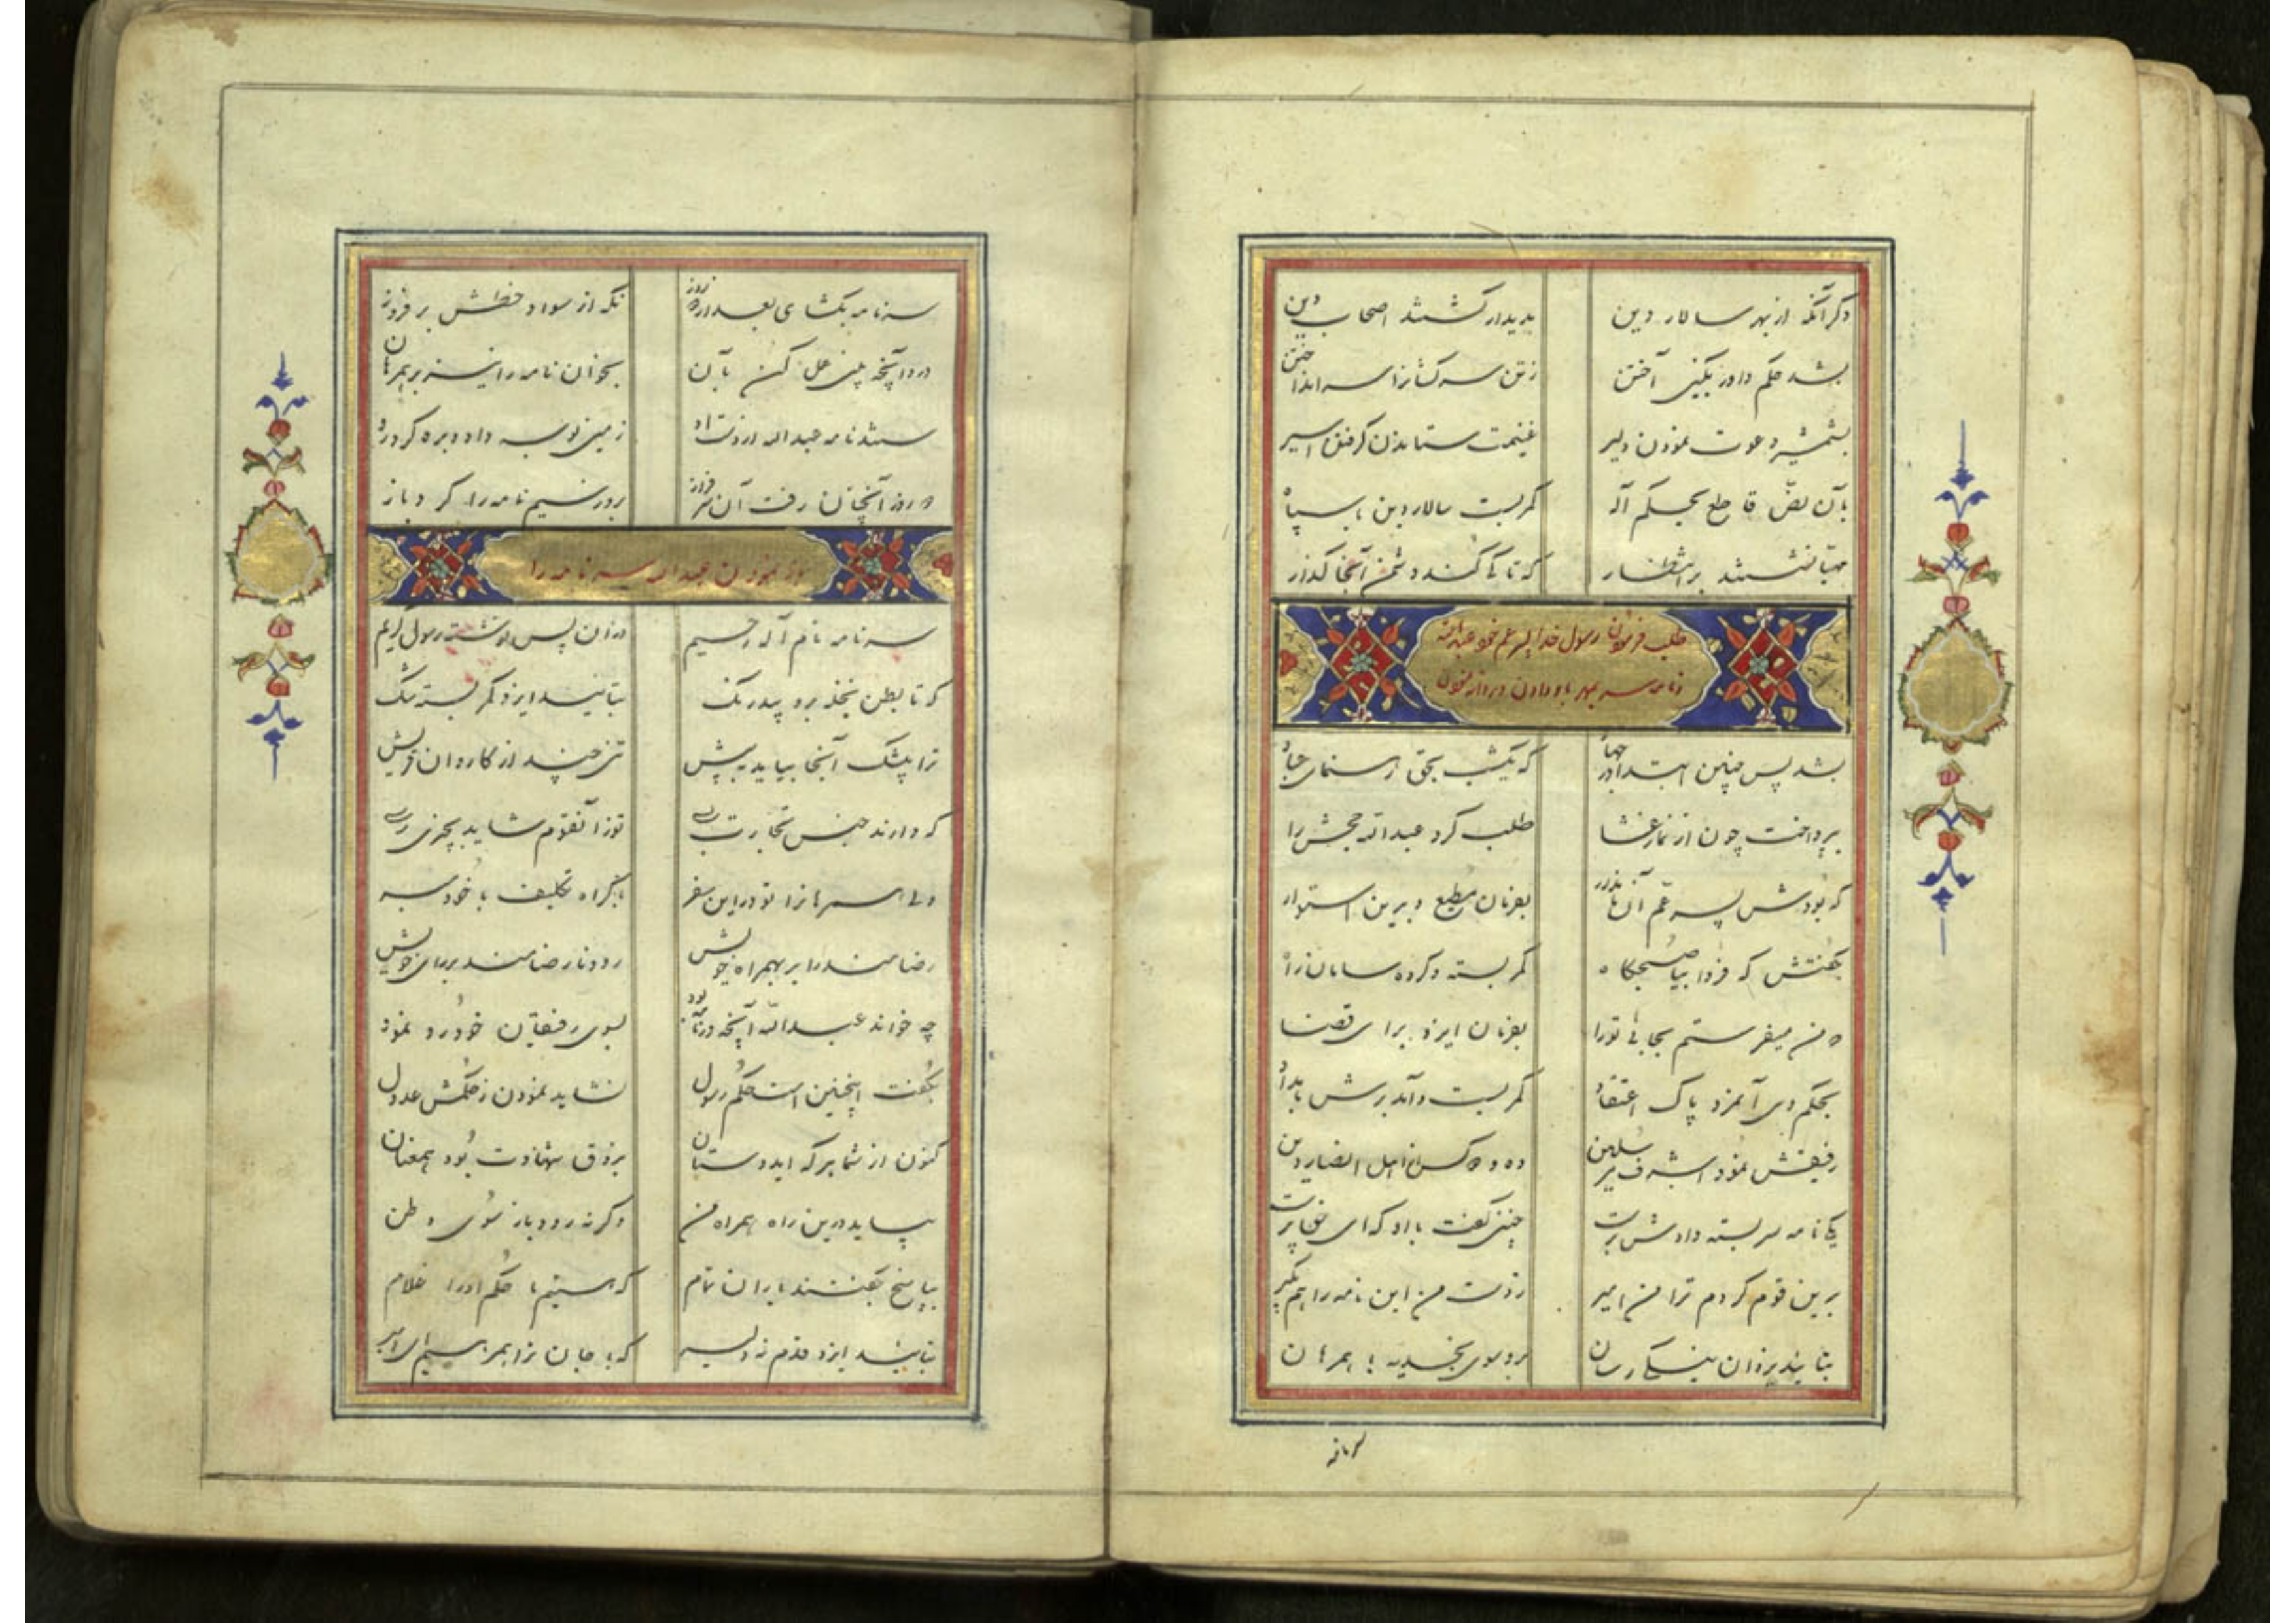 دگر آنکه از بهر سالار دین پدیدار گشتند اصحاب دین
بشد حکم داور بکین آختن ز تن سرکشانرا سر انداختن
بشمشیر دعوت نمودن دلیر غنیمت ستاندن گرفتن اسیر
بآن نص قاطع بحکم آله کمر بست سالار دین با سپاه
مهیا نشستند بر انتظار که تا کی کند دشمن آنجا گذار
طلب فرمودن رسول خدا پسر عم خود عبدالله
و نامه سر بمهر باو دادن و روانه نمودن
بشد پس چنین ابتدای جهاد که یکشب بحق
بپرداخت چون از نماز عشا طلب کرد عبدالله جحش را
که بودش پسر عم آن نامدار بفرمان مطیع و بدین استوار
بگفتش که فردا بیا صبحگاه کمر بسته و کرده سامان راه
که من میفرستم بجائی تو را بفرمان ایزد برای قضا
بحکم وی آنمرد پاک اعتقاد کمر بست و آمد برش بامداد
رفیقش نمود اشرف مرسلین ده و دو کس از اهل انصار دین
یکی نامه سربسته دادش بدست چنین گفت با او که ای حق پرست
برین قوم کردم ترا من امیر ز دست من این نامه را هم بگیر
بتائید یزدان نیکی رسان برو سوی نخله با همرهان
سرنامه بگشای بعد از دو روز نگه از سواد خطش بر فروز
در او آنچه بینی عمل کن بآن بخوان نامه را نیز بر همرهان
ستد نامه عبدالله از دست او زمین بوسه داد و بره کرد رو
دو روز آنچنان رفت آن سرفراز بروز سیم نامه را کرد باز
باز نمودن عبدالله سر نامه را
سر نامه نام آله رحیم وزان پس نوشته رسول کریم
که تا بطن نخله برو بیدرنگ بتائید ایزد کمر بسته تنگ
ترا بیشک آنجا بیاید به پیش تنی چند از کاروان قریش
که دارند جنس تجارت بسی تو زآنقوم شاید بچیزی رسی
ولی همرهانرا تو در این سفر باکراه تکلیف با خود مبر
رضامند را بر بهمراه خویش رود نارضامند بر رای خویش
چو خواند عبدالله آنچه در نامه بود بسوی رفیقان خود رو نمود
بگفت اینچنین است حکم رسول نشاید نمودن ز حکمش عدول
کنون از شما هر که ای دوستان بذوق شهادت بود همعنان
بیاید درین راه همراه من وگرنه رود باز سوی وطن
بپاسخ بگفتند یاران تمام که هستیم ما حکم او را غلام
بتائید ایزد قدم نه دلیر که با جان ترا همرهیم ای امیر